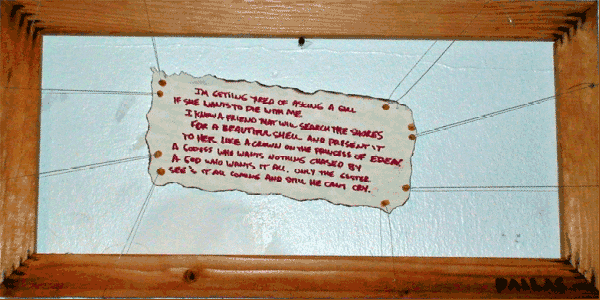 I'M GETTING TIRED OF ASKING A GIRL
IF SHE WANTS TO DIE WITH ME
I KNOW A FRIEND THAT WILL SEARCH THE SHORES
FOR A BEAUTIFUL SHELL AND PRESENT IT
TO HER LIKE A CROWN ON THE PRINCESS OF
A GODESS WHO WANTS NOTHING CHASED BY
A GOD WHO WANTS IT ALL. ONLY THE
SEE'S IT ALL COMING AND STILL HE CAN'T CRY.
DALLAS